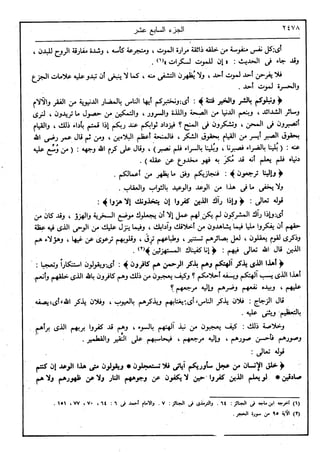 ٢٤٧٨ الجزء السابع عشر
أى: كل نفس منفوسة من خلقه ذائقة مرارة الموت، ومتجرعة كأسه، وشدة مفارقة الروح للبدن،
وقد جاء فى الحديث: « إن للموت لسكرات »(١).
فلا يفرحن أحد لموت أحد، ولا يُظهرن التشفى منه، كما لا ينبغى أن تبدو عليه علامات الجزع
والحسرة لموت أحد.
﴿ ونبلوكم بالشر والخير فتنة ﴾: أى: ونختبركم أيها الناس بالمضار الدنيوية من الفقر والآلام
وسائر الشدائد، وبنعم الدنيا من الصحة واللذة والسرور، والتمكين من حصول ما تريدون، لنرى
أتصبرون فى المحن، وتشكرون فى المنح؟ فيزداد ثوابكم عند ربكم إذا قمتم بأداء ذلك، والقيام
بحقوق الصبر أيسر من القيام بحقوق الشكر، فالمنحة أعظم البلاءين، ومن ثم قال عمر رضى الله
عنه: (بُلينا بالضراء فصبرنا، وبُلينا بالسراء فلم نصبر)، وقال على كرم الله وجهه: (من وُسع عليه
دنياه فلم يعلم أنه قد مُكر به فهو مخدوع عن عقله).
﴿ وإلينا ترجعون ﴾: فنجازيكم وفق ما يظهر من أعمالكم.
ولا يخفى ما فى هذا من الوعد والوعيد بالثواب والعقاب.
قوله تعالى: ﴿ وإذا رآك الذين كفروا إن يتخذونك إلا هزوا ﴾:
أى: وإذا رآك المشركون لم يكن لهم عمل إلا أن يجعلوك موضع السخرية والهزؤ، وقد كان من
حقهم أن يفكروا مليا فيما يشاهدون من أخلاقك وآدابك، وفيما ينزل عليك من الوحى الذى فيه عظة
وذكرى لقوم يعقلون، لعل بصائرهم تستنير، وطباعهم ترق، وقلوبهم ترعوى عن غيها، وهؤلاء هم
الذين قال الله تعالى فيهم: ﴿ إنا كفيناك المستهزئين ﴾(٢).
﴿ أهذا الذى يذكر آلهتكم وهم بذكر الرحمن هم كافرون ﴾: أى: ويقولون استنكاراً وتعجبا:
أهذا الذى يسب آلهتكم ويسفه أحلامكم؟ وكيف يعجبون من ذلك وهم كافرون بالله الذى خلقهم وأنعم
عليهم، وبيده نفعهم وضرهم وإليه مرجعهم؟
قال الزجاج: فلان يذكر الناس، أى: يغتابهم ويذكرهم بالعيوب، وفلان يذكر الله: أى: يصفه
بالتعظيم ويثنى عليه.
وخلاصة ذلك: كيف يعجبون من نبذ آلهتهم بالسوء، وهم قد كفروا بربهم الذى برأهم
وصورهم فأحسن صورهم، وإليه مرجعهم، فيحاسبهم على النقير والقطمير.
قوله تعالى:
﴿ خلق الإنسان من عجل سأوريكم آياتى فلا تستعجلون * ويقولون متى هذا الوعد إن كنتم
صادقين * لو يعلم الذين كفروا حين لا يكفون عن وجوههم النار ولا عن ظهورهم ولا هم
(١) أخرجه ابن ماجه فى الجنائز: ٦٤. والترمذى فى الجنائز: ٧. والإمام أحمد فى ٦: ٦٤، ٧٠، ٧٧، ١٥١.
(٢) الآية ٩٥ من سورة الحجر.